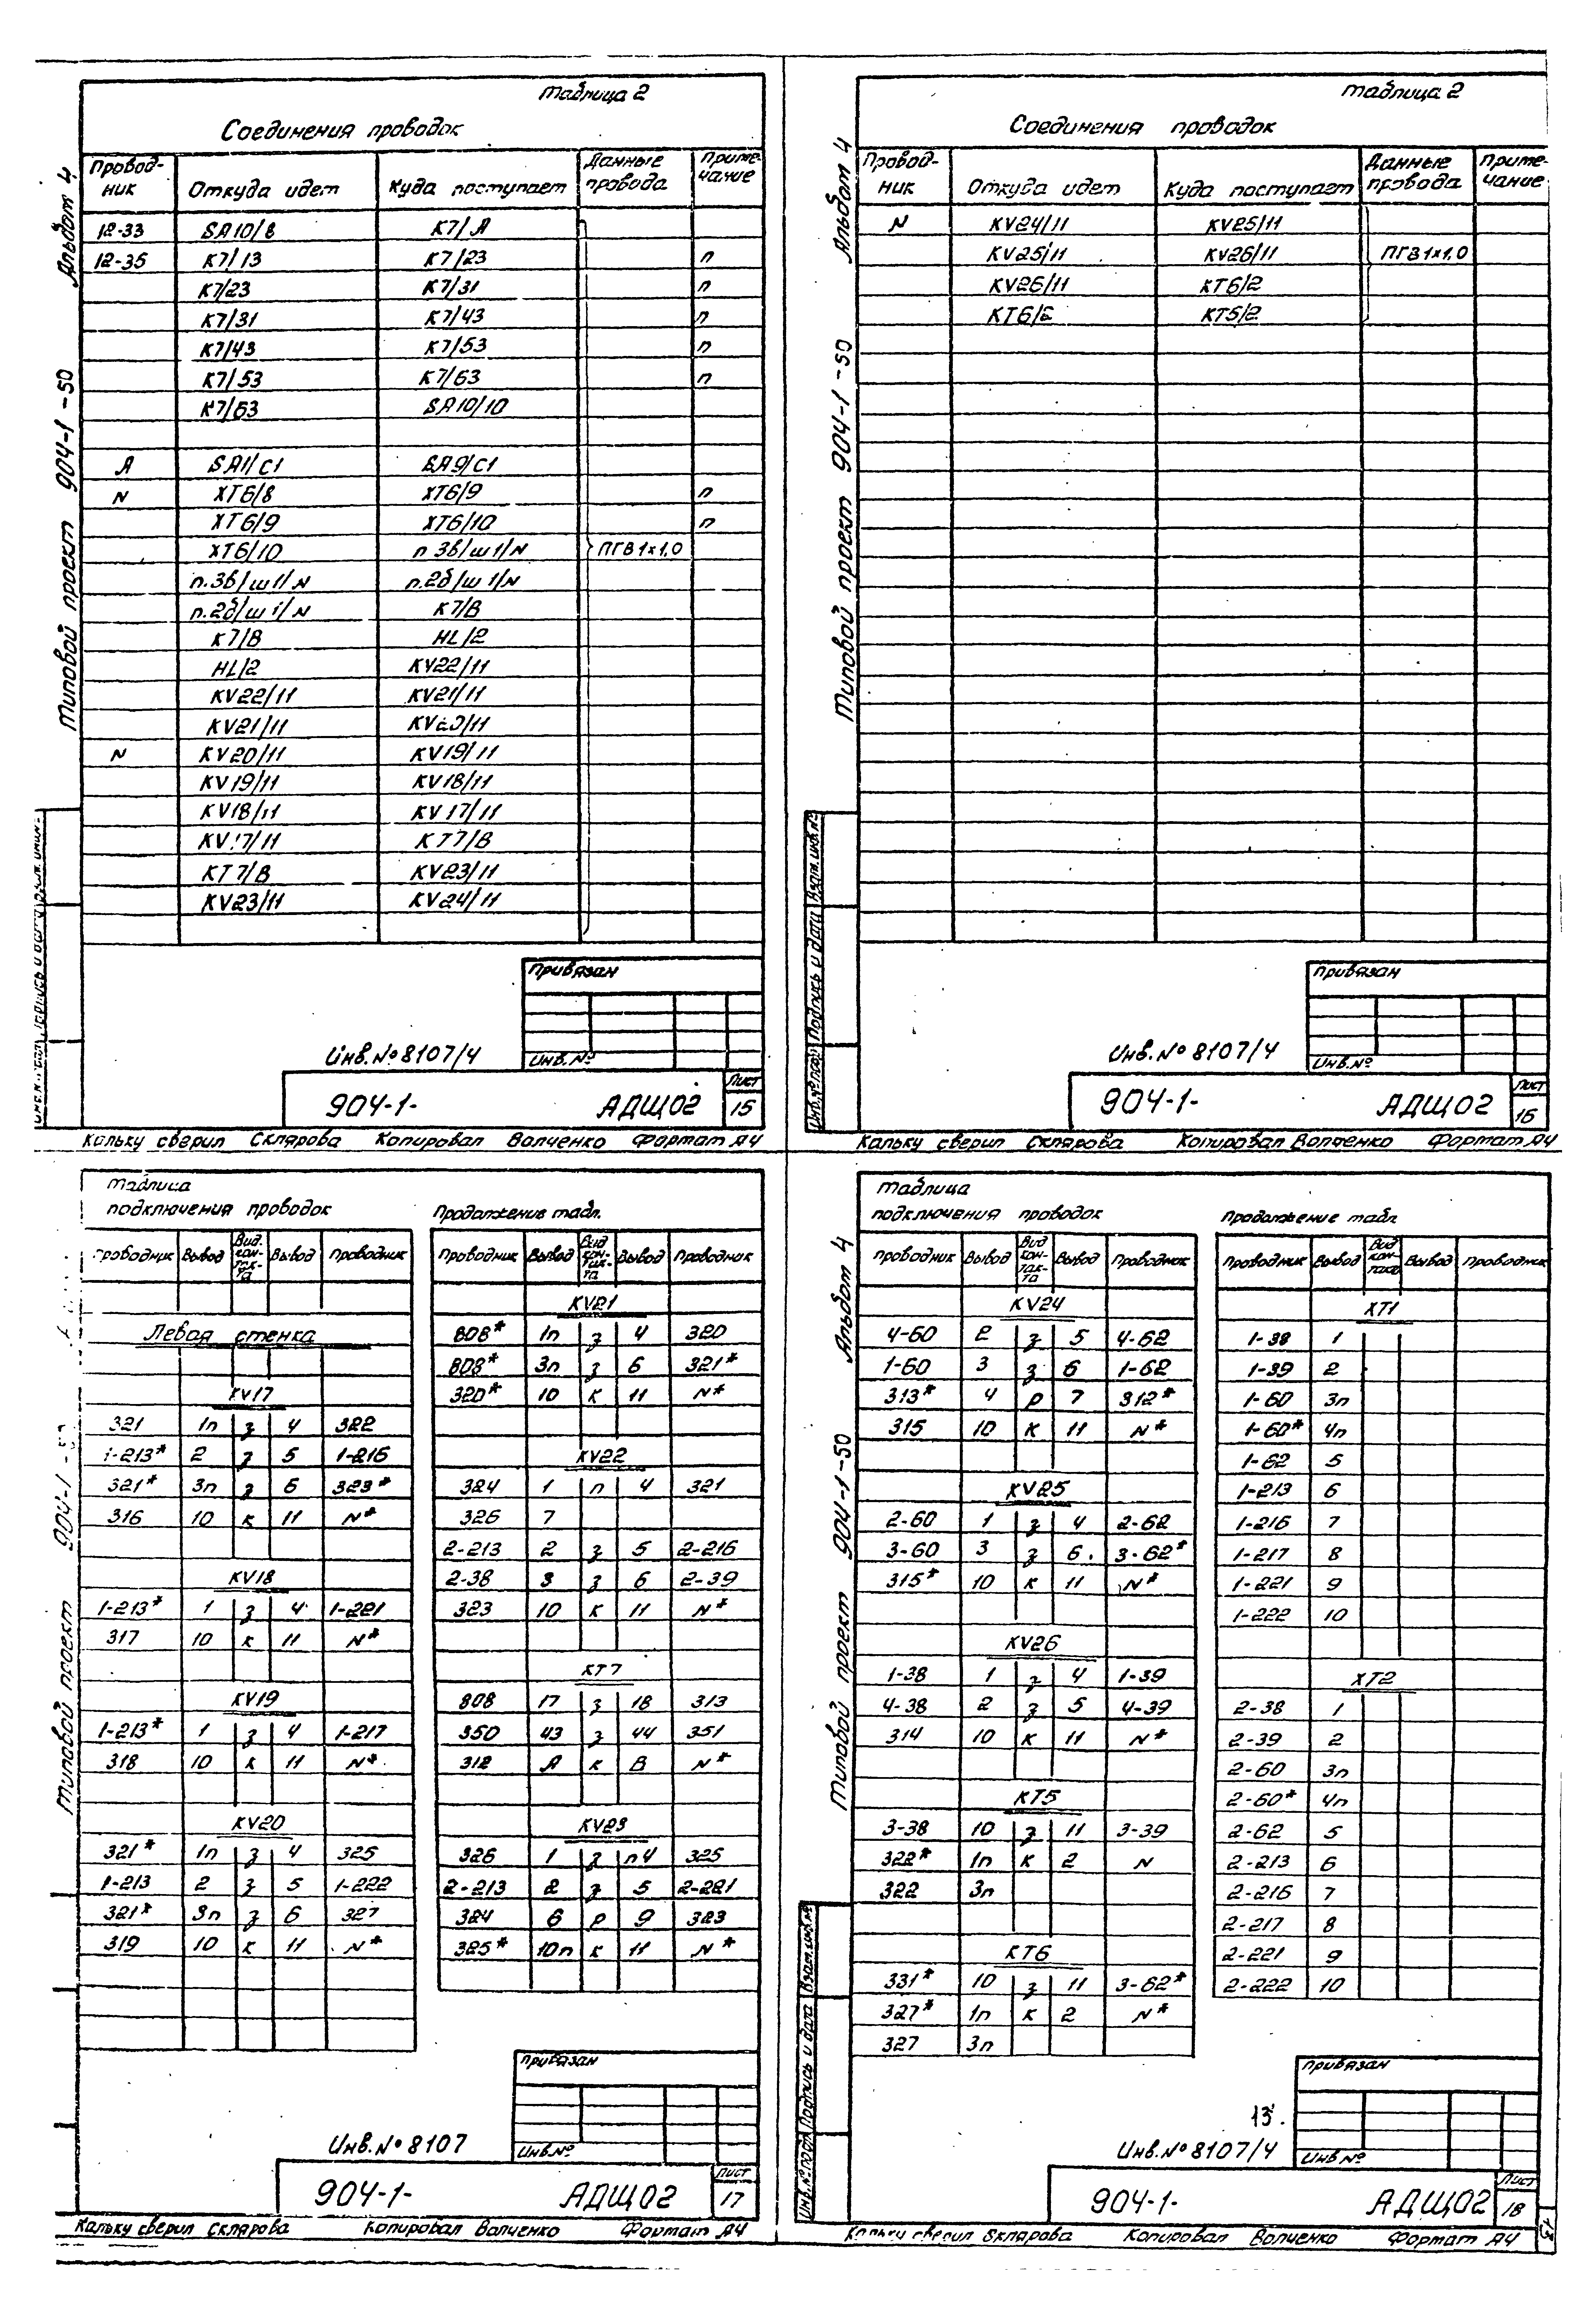 Таблица 2
Соединения проводок
Провод- ник Откуда идет Куда поступает Данные провода Приме- чание
12-33 SA10/8 K7/A
12-35 K7/13 K7/23 п
K7/23 K7/31 п
K7/31 K7/43 п
K7/43 K7/53 п
K7/53 K7/63 п
K7/63 SA10/10
A SA1/C1 SA9/C1
N XT6/8 XT6/9 п
XT6/9 XT6/10 п
XT6/10 п.3в/ш1/N ПГВ1х1,0
п.3в/ш1/N п.2б/ш1/N
п.2б/ш1/N K7/B
K7/B HL/2
HL/2 KV22/11
KV22/11 KV21/11
KV21/11 KV20/11
N KV20/11 KV19/11
KV19/11 KV18/11
KV18/11 KV17/11
KV17/11 KT7/B
KT7/B KV23/11
KV23/11 KV24/11
Привязан
Инв.№
Инв.№8107/4
904-1- АДЩ02 Лист 15
Кальку сверил Склярова Копировал Волченко Формат А4
Типовой проект 904-1-50 Альбом 4
Таблица 2
Соединения проводок
Провод- ник Откуда идет Куда поступает Данные провода Приме- чание
N KV24/11 KV25/11
KV25/11 KV26/11 ПГВ1х1,0
KV26/11 KT6/2
KT6/2 KT5/2
Привязан
Инв.№
Инв.№8107/4
904-1- АДЩ02 Лист 16
Кальку сверил Склярова Копировал Волченко Формат А4
Типовой проект 904-1-50 Альбом 4
Инв.№подл Подпись и дата Взам.инв.№
Таблица
подключения проводок
Проводник Вывод Вид кон- так- та Вывод Проводник
Левая стенка
KV17
321 1п з 4 322
1-213* 2 з 5 1-216
321* 3п з 6 323*
316 10 к 11 N*
KV18
1-213* 1 з 4 1-221
317 10 к 11 N*
KV19
1-213* 1 з 4 1-217
318 10 к 11 N*
KV20
321* 1п з 4 325
1-213 2 з 5 1-222
321* 3п з 6 327
319 10 к 11 N*
Продолжение табл.
Проводник Вывод Вид кон- так- та Вывод Проводник
KV21
808* 1п з 4 320
808* 3п з 6 321*
320* 10 к 11 N*
KV22
324 1 п 4 321
326 7
2-213 2 з 5 2-216
2-38 3 з 6 2-39
323 10 к 11 N*
KT7
808 17 з 18 313
350 43 з 44 351
312 A к B N*
KV23
326 1 з п4 325
2-213 2 з 5 2-221
324 6 р 9 323
325* 10п к 11 N*
Привязан
Инв.№
Инв.№8107
904-1- АДЩ02 Лист 17
Кальку сверил Склярова Копировал Волченко Формат А4
Типовой проект 904-1
Таблица
подключения проводок
Проводник Вывод Вид кон- так- та Вывод Проводник
KV24
4-60 2 з 5 4-62
1-60 3 з 6 1-62
313* 4 р 7 312*
315 10 к 11 N*
KV25
2-60 1 з 4 2-62
3-60 3 з 6 3-62*
315* 10 к 11 N*
KV26
1-38 1 з 4 1-39
4-38 2 з 5 4-39
314 10 к 11 N*
KT5
3-38 10 з 11 3-39
322* 1п к 2 N
322 3п
KT6
331* 10 з 11 3-62*
327* 1п к 2 N*
327 3п
Продолжение табл
Проводник Вывод Вид кон- такта Вывод Проводник
XT1
1-38 1
1-39 2
1-60 3п
1-60* 4п
1-62 5
1-213 6
1-216 7
1-217 8
1-221 9
1-222 10
XT2
2-38 1
2-39 2
2-60 3п
2-60* 4п
2-62 5
2-213 6
2-216 7
2-217 8
2-221 9
2-222 10
Привязан
Инв№
13.
Инв.№8107/4
904-1- АДЩ02 Лист 18
Кальку сверил Склярова Копировал Волченко Формат А4
13
Типовой проект 904-1-50 Альбом 4
Инв.№подл Подпись и дата Взам.инв.№